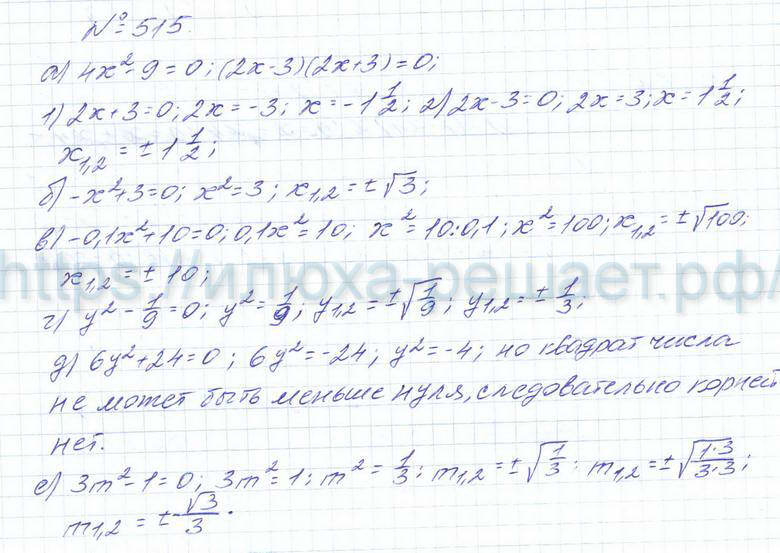 № 515.
а) 4x² - 9 = 0; (2x-3)(2x+3) = 0;
1) 2x+3=0; 2x = -3; x = -1 1/2; 2) 2x-3=0; 2x=3; x = 1 1/2;
x₁,₂ = ± 1 1/2;
б) -x²+3=0; x²=3; x₁,₂ = ±√3;
в) -0,1x²+10=0; 0,1x²=10; x²=10:0,1; x²=100; x₁,₂ = ±√100;
https://илюха-решает.рф/
x₁,₂ = ± 10;
г) y² - 1/9 = 0; y² = 1/9; y₁,₂ = ±√(1/9); y₁,₂ = ± 1/3;
д) 6y²+24=0; 6y²=-24; y²=-4; но квадрат числа
не может быть меньше нуля, следовательно корней
нет.
е) 3m²-1=0; 3m²=1; m² = 1/3; m₁,₂ = ±√(1/3); m₁,₂ = ±√(1·3/3·3);
m₁,₂ = ± √3/3.